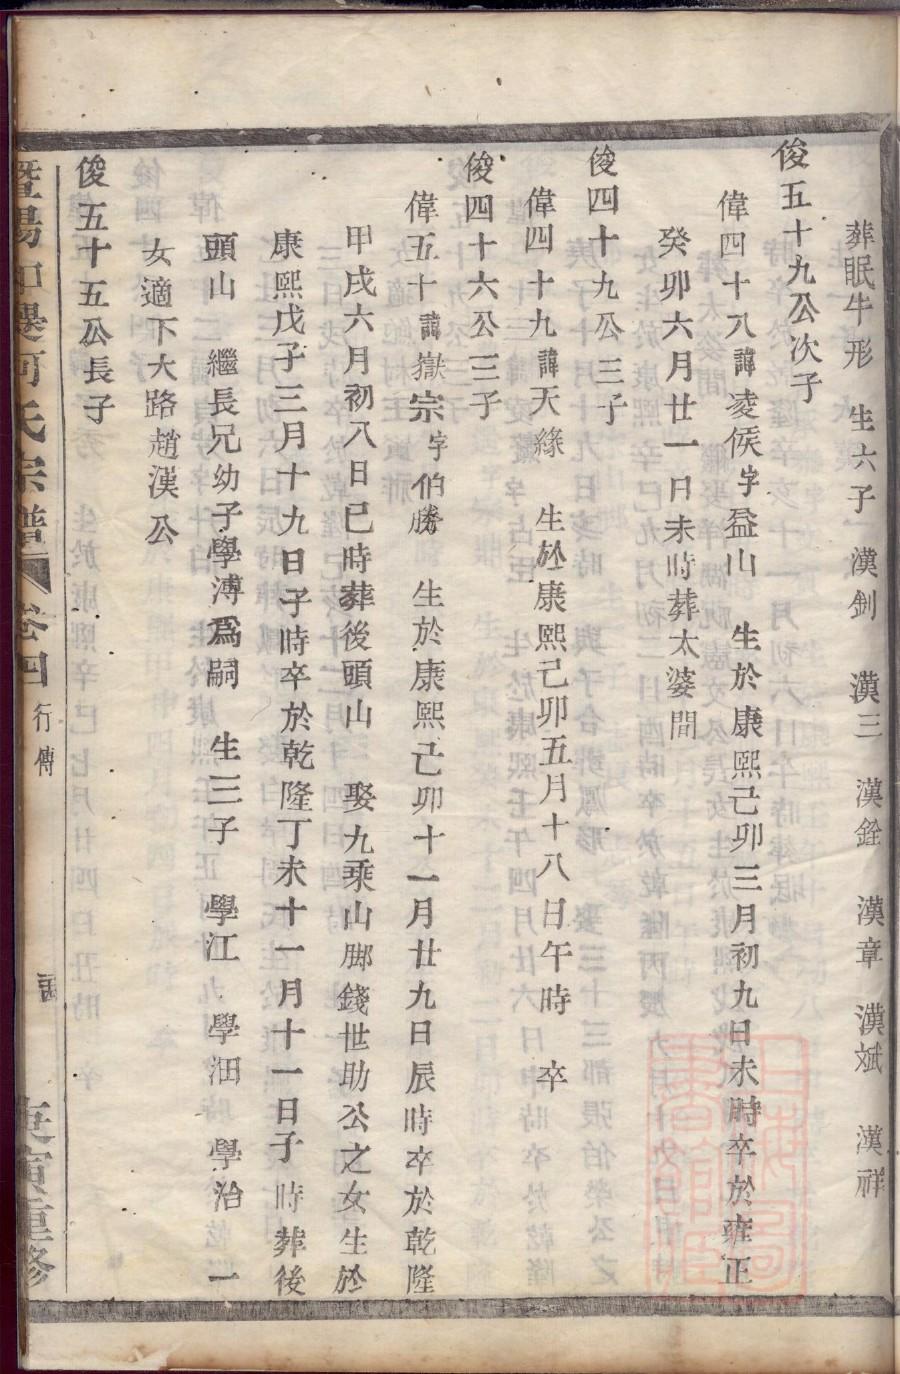 葬眠牛形　生六子　漢釗　漢三　漢銓　漢章　漢斌　漢祥
俊五十九公次子
偉四十八諱凌侯字益山　生於康熙己卯三月初九日未時卒於雍正
癸卯六月廿一日未時葬太婆間
俊四十九公三子
偉四十九諱天緣　生於康熙己卯五月十八日午時　卒
俊四十六公三子
偉五十諱嶽宗字伯勝　生於康熙己卯十一月廿九日辰時卒於乾隆
甲戌六月初八日巳時葬後頭山　娶九乘山腳錢世助公之女生於
康熙戊子三月十九日子時卒於乾隆丁未十一月十一日子時葬後
頭山　繼長兄幼子學溥爲嗣　生三子　學江　學洄　學治　一
女適下大路趙漢公
俊五十五公長子
暨陽河氏宗譜　卷四　行傳　庚寅重修